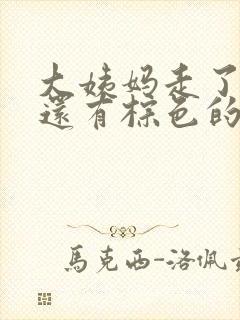 大姨妈走了
還有棕色的
馬克西-洛佩